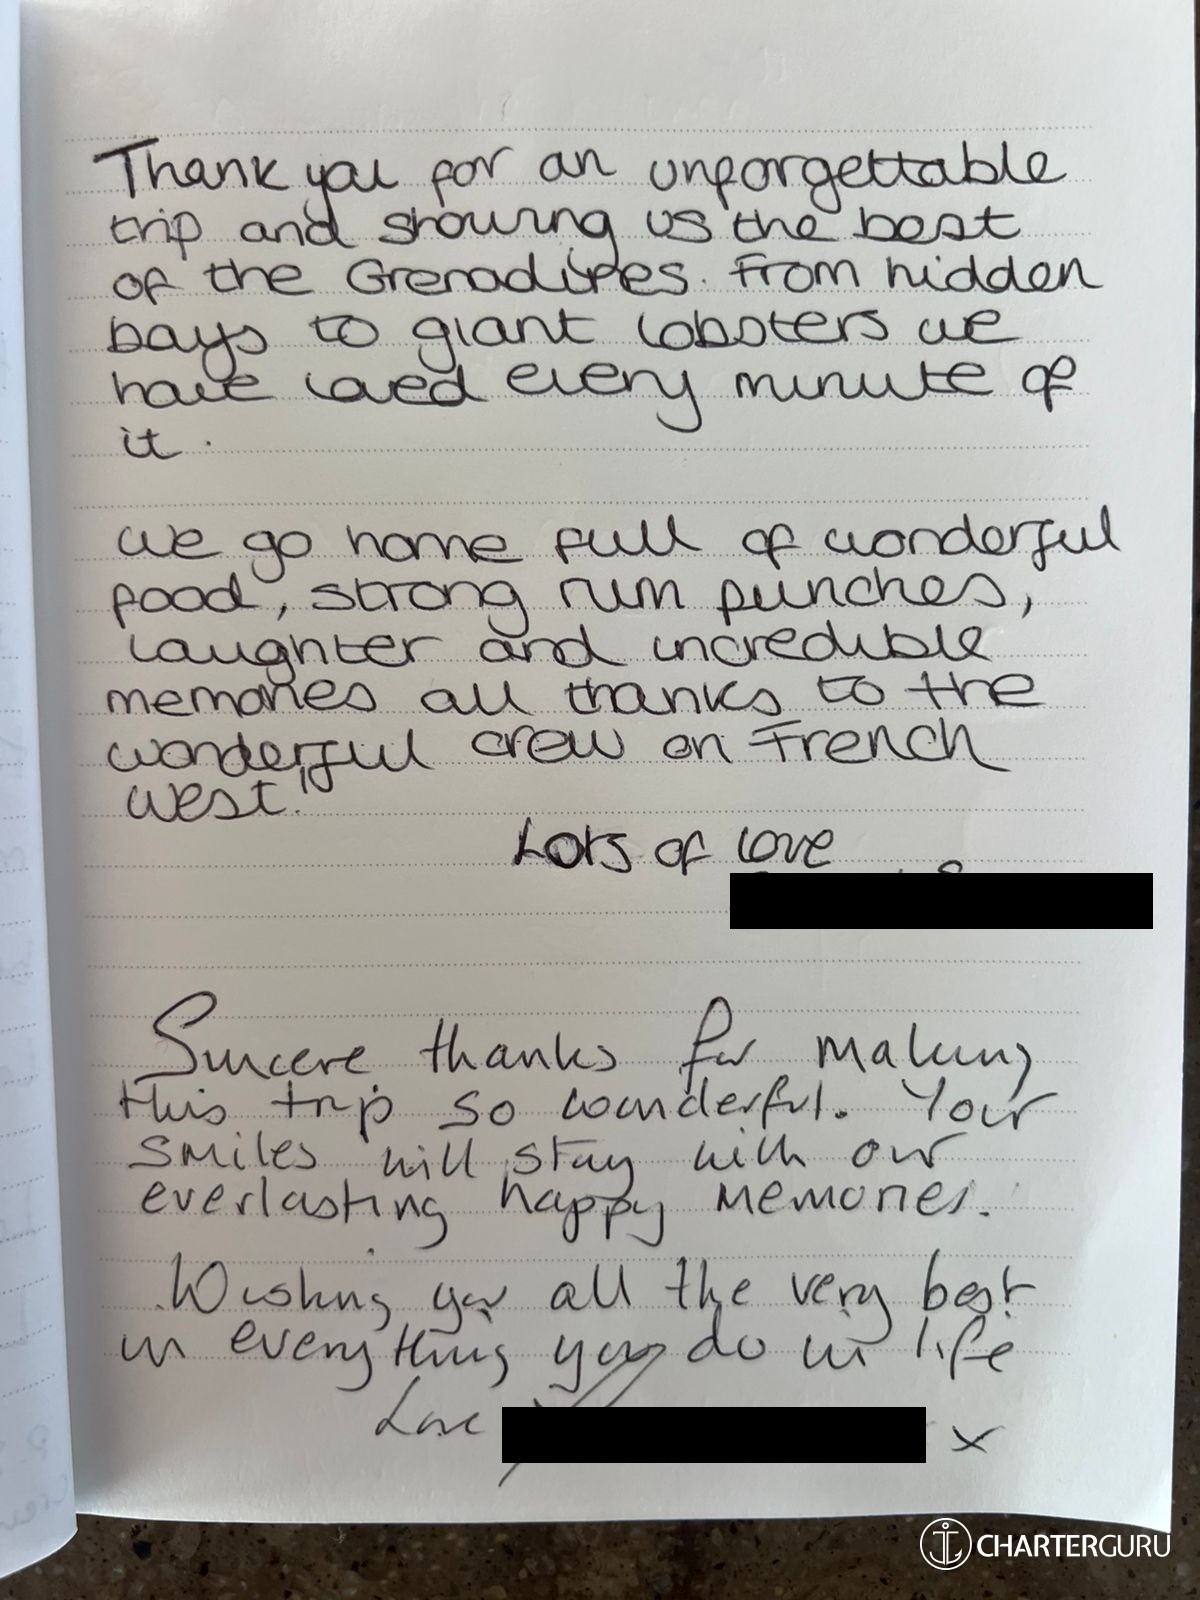 Thank you for an unforgettable
trip and showing us the best
of the Grenadines. From hidden
bays to giant lobsters we
have loved every minute of
it.
We go home full of wonderful
food, strong rum punches,
laughter and incredible
memories all thanks to the
wonderful crew on French
West!
Lots of love
Sincere thanks for making
this trip so wonderful. Your
smiles will stay with our
everlasting happy memories.
Wishing you all the very best
in everything you do in life
Love x
CHARTERGURU